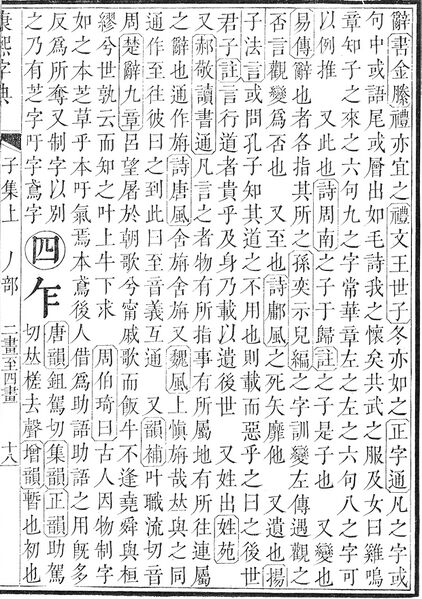 辭書金縢禮亦宜之禮文王世子冬亦如之正字通凡之字或
句中或語尾或層出如毛詩我之懷矣共武之服及女曰雞鳴
章知子之來之六句九之字常華章左之左之六句八之字可
以例推 又此也詩周南之子于歸註之子是子也 又變也
易傳辭也者各指其所之孫奕示兒編之字訓變左傳遇觀之
否言觀變爲否也 又至也詩鄘風之死矢靡他 又遺也揚
子法言或問孔子知其道之不用也則載而惡乎之曰之後世
君子註言行道者貴乎及身乃載以遺後世 又姓出姓苑
又郝敬讀書通凡言之者物有所指事有所屬地有所往連屬
之辭也通作旃詩唐風舍旃舍旃又魏風上愼旃哉𠀤與之同
通作至往彼曰之到此曰至音義互通 又韻補叶職流切音
周楚辭九章呂望屠於朝歌兮甯戚歌而飯牛不逢堯舜與桓
繆兮世孰云而知之叶上牛下求 周伯琦曰古人因物制字
如之本芝草乎本吁氣焉本鳶後人借爲助語助語之用旣多
反爲所奪又制字以別
之乃有芝字吁字鳶字
四
乍
唐韻鉏駕切集韻正韻助駕
切𠀤槎去聲增韻暫也初也
康熙字典 子集上 丿部 二畫至四畫 十八